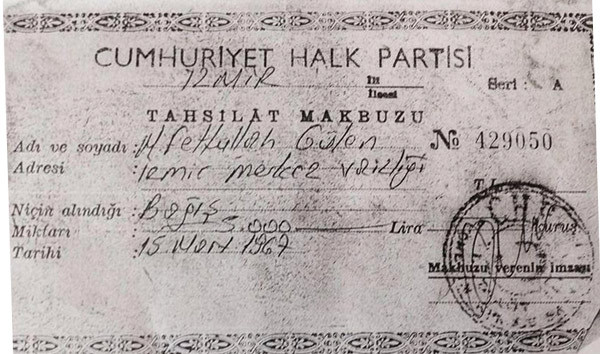 CUMHURİYET HALK PARTİSİ
İZMİR İli
İlçesi
Seri : A
TAHSİLÂT MAKBUZU
Adı ve soyadı : M Fethullah Gülen
№ 429050
Adresi : İzmir merkez vaizliği
T L
Niçin alındığı : Bağış
Miktarı : 5.000 Lira Kuruş
Tarihi : 15 Mart 1967
Makbuzu verenin imzası